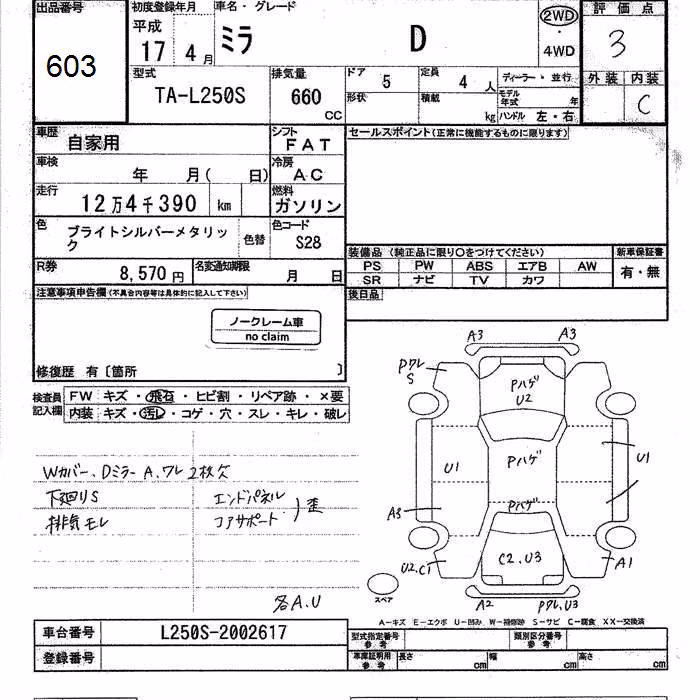 出品番号 初度登録年月 車名・グレード 2WD 評価点
603 平成 ミラ D ・ 3
17年4月 4WD
型式 排気量 ドア 5 定員 4人 ディーラー・並行 外装 内装
TA-L250S 660 CC 形状 積載 kg モデル年式 年 C
ハンドル 左・右
車歴 自家用 シフト FAT セールスポイント(正常に機能するものに限ります)
車検 年 月( 日) 冷房 AC
走行 12万4千390 km 燃料 ガソリン
色 ブライトシルバーメタリック 色替 色コード S28
装備品(純正品に限り○をつけてください) 新車保証書
R券 8,570円 名変通知期限 月 日 PS PW ABS エアB AW 有・無
SR ナビ TV カワ
注意事項申告欄(不具合内容等は具体的に記入して下さい) 後日品
ノークレーム車
no claim
修復歴 有〔箇所 〕
検査員記入欄 FW キズ・飛石・ヒビ割・リペア跡・×要
内装 キズ・汚レ・コゲ・穴・スレ・キレ・破レ
Wカバー、Dミラー A、ワレ 2枚欠
下廻りS エンドパネル
排気モレ コアサポート )歪
各A.U
A3 A3
Pワレ
S
Pハゲ
U2
U1 Pハゲ U1
A3 Pハゲ
U2.C1 C2.U3 A1
スペア A2 Pワレ.U3
A-キズ E-エクボ U-凹み W-補修跡 S-サビ C-腐食 XX-交換済
車台番号 L250S-2002617 型式指定番号 参考 類別区分番号 参考
登録番号 車庫証明用 参考 長さ cm 幅 cm 高さ cm